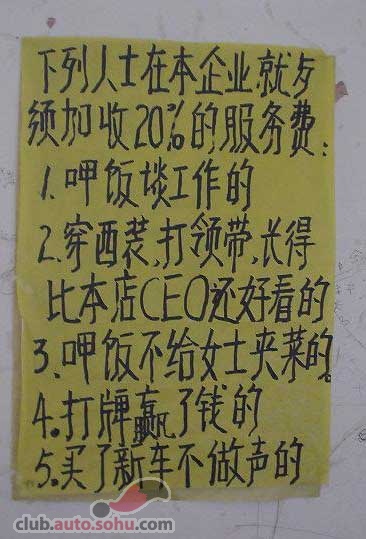 下列人士在本企业就歺
须加收20%的服务费:
1.呷饭谈工作的
2.穿西装,打领带,长得
比本店CEO还好看的
3、呷饭不给女士夹菜的。
4.打牌赢了钱的
5.买了新车不做声的
club.auto.sohu.com